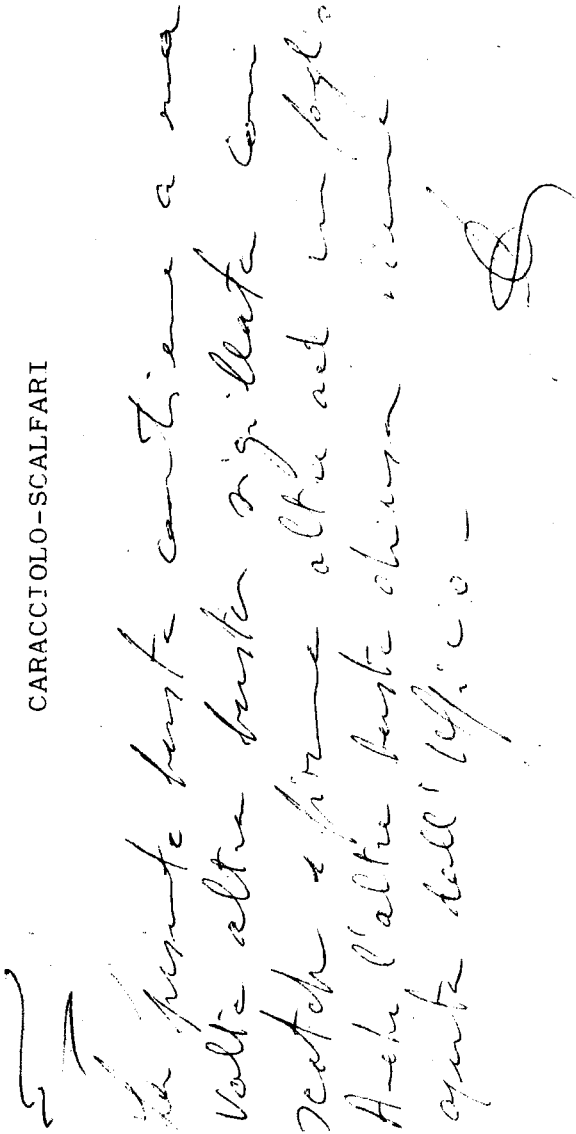 CARACCIOLO-SCALFARI
La presente busta contiene a sua
volta altra busta sigillata con
scotch e firme oltre ad un foglio
Anche l'altra busta chiusa viene
aperta dall'Ufficio -